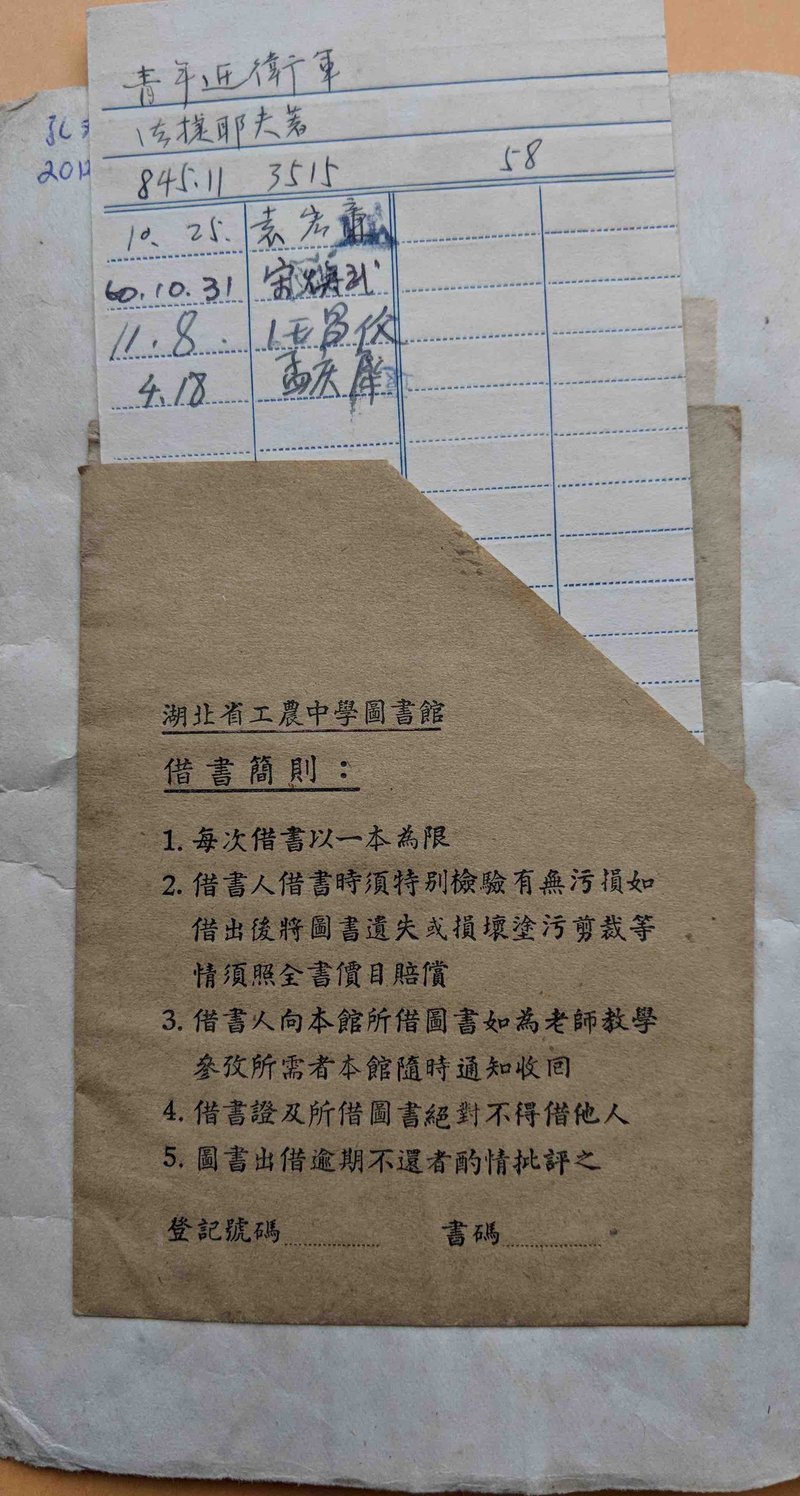 青年近衛軍
法捷耶夫著
845.11 3515 58
10. 25. 袁
60.10.31 宋
11. 8.
4.18 孟庆
201
湖北省工農中學圖書館
借書簡則：
1. 每次借書以一本為限
2. 借書人借書時須特別檢驗有無污損如
借出後將圖書遺失或損壞塗污剪裁等
情須照全書價目賠償
3. 借書人向本館所借圖書如為老師教學
參攷所需者本館隨時通知收回
4. 借書證及所借圖書絕對不得借他人
5. 圖書出借逾期不還者酌情批評之
登記號碼 書碼